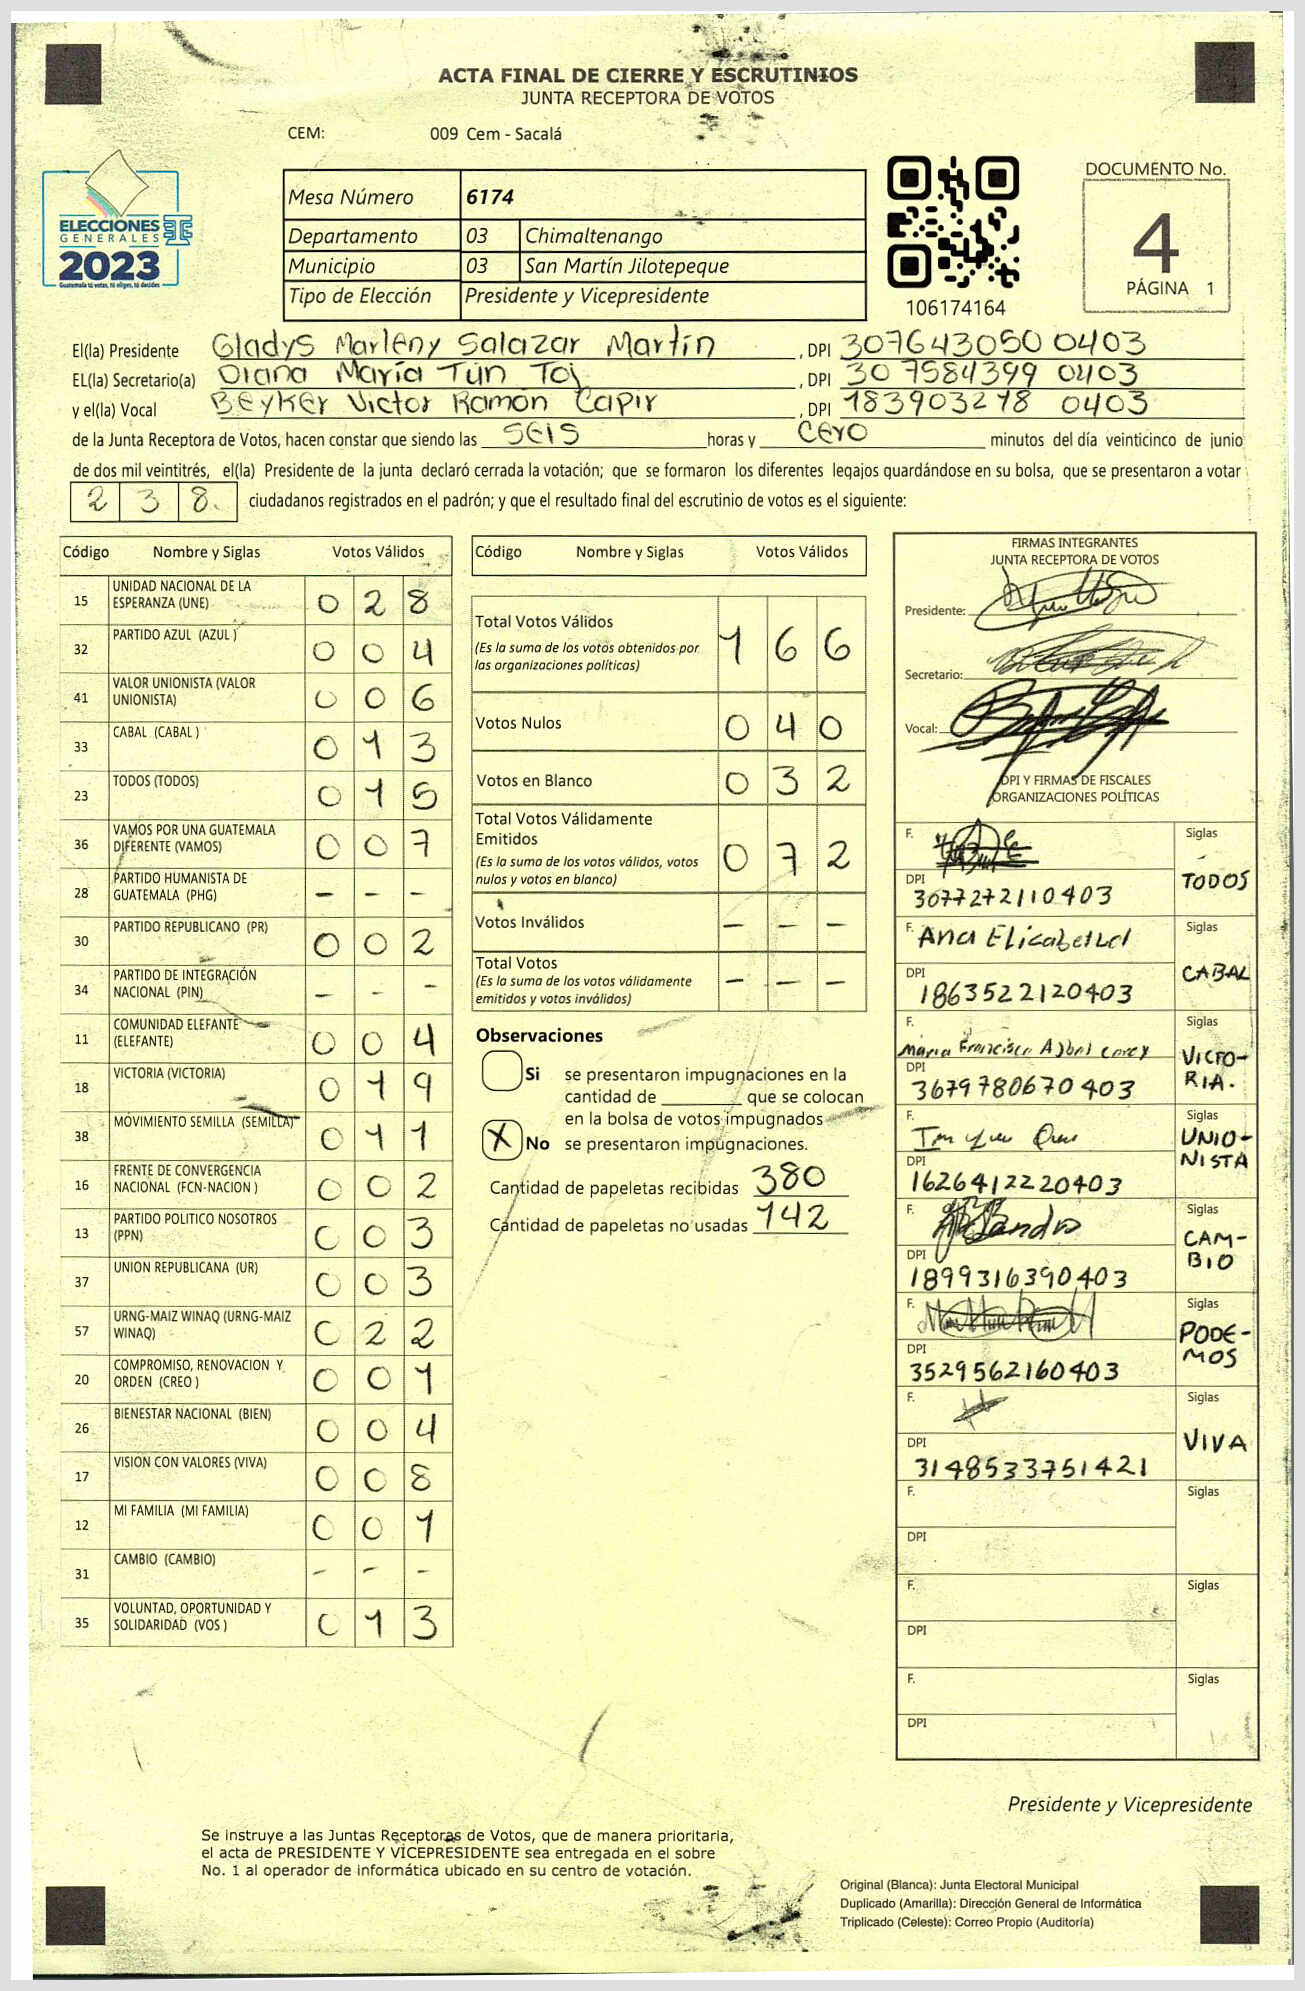 ACTA FINAL DE CIERRE Y ESCRUTINIOS
JUNTA RECEPTORA DE VOTOS
CEM: 009 Cem - Sacalá
ELECCIONES
GENERALES
2023
Guatemala tú votas, tú eliges, tú decides
Mesa Número 6174
Departamento 03 Chimaltenango
Municipio 03 San Martín Jilotepeque
Tipo de Elección Presidente y Vicepresidente
106174164
DOCUMENTO No.
4
PÁGINA 1
El(la) Presidente Gladys Marleny Salazar Martín , DPI 307643050 0403
EL(la) Secretario(a) Diana María Tun Toj , DPI 307584399 0403
y el(la) Vocal Beyker Victor Ramón Capir , DPI 183903278 0403
de la Junta Receptora de Votos, hacen constar que siendo las SEIS horas y cero minutos del día veinticinco de junio
de dos mil veintitrés, el(la) Presidente de la junta declaró cerrada la votación; que se formaron los diferentes legajos quardándose en su bolsa, que se presentaron a votar
238. ciudadanos registrados en el padrón; y que el resultado final del escrutinio de votos es el siguiente:
Código Nombre y Siglas Votos Válidos
15 UNIDAD NACIONAL DE LA ESPERANZA (UNE) 0 2 8
32 PARTIDO AZUL (AZUL ) 0 0 4
41 VALOR UNIONISTA (VALOR UNIONISTA) 0 0 6
33 CABAL (CABAL ) 0 1 3
23 TODOS (TODOS) 0 1 5
36 VAMOS POR UNA GUATEMALA DIFERENTE (VAMOS) 0 0 7
28 PARTIDO HUMANISTA DE GUATEMALA (PHG) - - -
30 PARTIDO REPUBLICANO (PR) 0 0 2
34 PARTIDO DE INTEGRACIÓN NACIONAL (PIN) - - -
11 COMUNIDAD ELEFANTE (ELEFANTE) 0 0 4
18 VICTORIA (VICTORIA) 0 1 9
38 MOVIMIENTO SEMILLA (SEMILLA) 0 1 1
16 FRENTE DE CONVERGENCIA NACIONAL (FCN-NACION ) 0 0 2
13 PARTIDO POLITICO NOSOTROS (PPN) 0 0 3
37 UNION REPUBLICANA (UR) 0 0 3
57 URNG-MAIZ WINAQ (URNG-MAIZ WINAQ) 0 2 2
20 COMPROMISO, RENOVACION Y ORDEN (CREO ) 0 0 1
26 BIENESTAR NACIONAL (BIEN) 0 0 4
17 VISION CON VALORES (VIVA) 0 0 8
12 MI FAMILIA (MI FAMILIA) 0 0 1
31 CAMBIO (CAMBIO) - - -
35 VOLUNTAD, OPORTUNIDAD Y SOLIDARIDAD (VOS ) 0 1 3
Código Nombre y Siglas Votos Válidos
Total Votos Válidos 1 6 6
(Es la suma de los votos obtenidos por
las organizaciones políticas)
Votos Nulos 0 4 0
Votos en Blanco 0 3 2
Total Votos Válidamente
Emitidos 0 7 2
(Es la suma de los votos válidos, votos
nulos y votos en blanco)
Votos Inválidos - - -
Total Votos - - -
(Es la suma de los votos válidamente
emitidos y votos inválidos)
Observaciones
Si se presentaron impugnaciones en la
cantidad de ________ que se colocan
en la bolsa de votos impugnados
X No se presentaron impugnaciones.
Cantidad de papeletas recibidas 380
Cantidad de papeletas no usadas 142
FIRMAS INTEGRANTES
JUNTA RECEPTORA DE VOTOS
Presidente:
Secretario:
Vocal:
DPI Y FIRMAS DE FISCALES
ORGANIZACIONES POLÍTICAS
F. Siglas
DPI 3077272110403 TODOS
F. Ana Siglas
DPI 1863522120403 CABAL
F. Maria Siglas
DPI 3679780670403 VICTO-
RIA.
F. Siglas
DPI 1626412220403 UNIO-
NISTA
F. Siglas
DPI 1899316390403 CAM-
BIO
F. Siglas
DPI 3529562160403 PODE-
MOS
F. Siglas
DPI 3148533751421 VIVA
F. Siglas
DPI
F. Siglas
DPI
F. Siglas
DPI
Presidente y Vicepresidente
Se instruye a las Juntas Receptoras de Votos, que de manera prioritaria,
el acta de PRESIDENTE Y VICEPRESIDENTE sea entregada en el sobre
No. 1 al operador de informática ubicado en su centro de votación.
Original (Blanca): Junta Electoral Municipal
Duplicado (Amarilla): Dirección General de Informática
Triplicado (Celeste): Correo Propio (Auditoría)